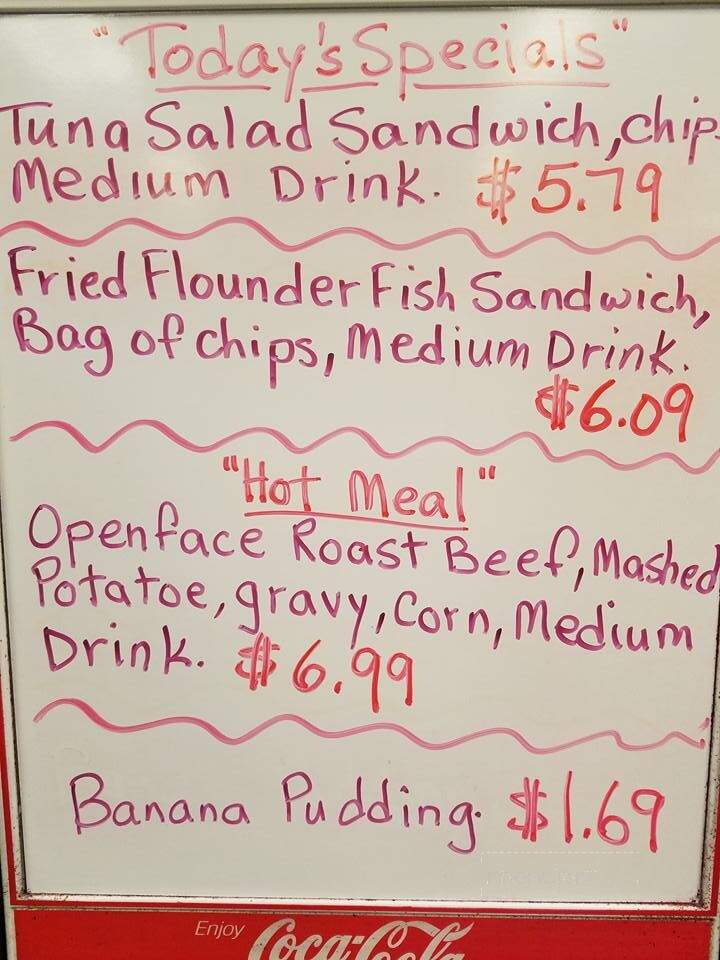 "Today's Specials"
Tuna Salad Sandwich, chip
Medium Drink. $5.79
Fried Flounder Fish Sandwich,
Bag of chips, Medium Drink.
$6.09
"Hot Meal"
Openface Roast Beef, Mashed
Potatoe, gravy, Corn, Medium
Drink. $6.99
Banana Pudding. $1.69
Enjoy Coca-Cola